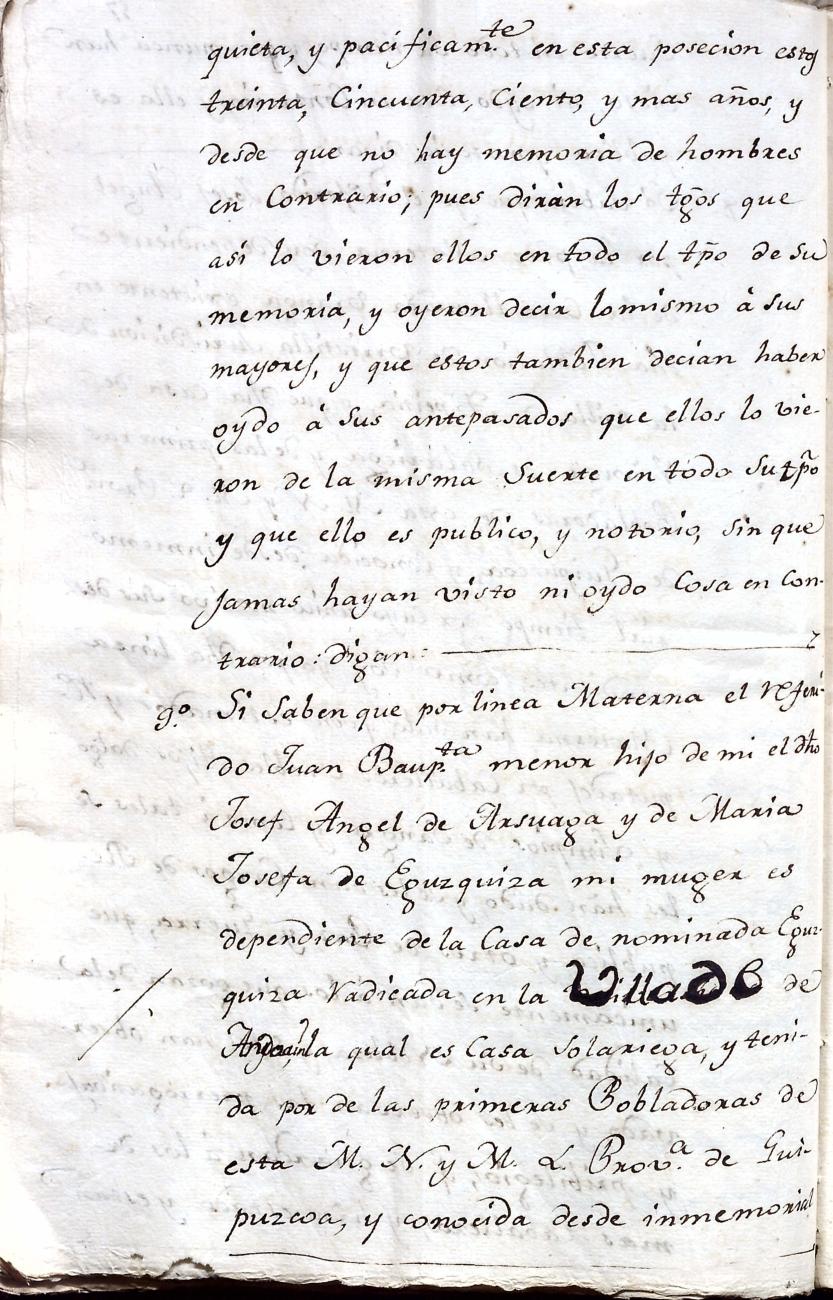 quieta, y pacificam.te en esta posecion estos
treinta, Cincuenta, Ciento, y mas años, y
desde que no hay memoria de hombres
en Contrario; pues diràn los tg̃os que
asi lo vieron ellos en todo el tp̃o de su
memoria, y oyeron decir lomismo à sus
mayores, y que estos tambien decian haber
oydo à sus antepasados que ellos lo vie-
ron de la misma suerte en todo su tp̃o
y que ello es publico, y notorio, sin que
Jamas hayan visto ni oydo Cosa en Con-
trario: digan
9.º Si Saben que por linea Materna el referi-
do Juan Baup.ta menor hijo de mi el dho
Josef Angel de Arsuaga y de Maria
Josefa de Eguzquiza mi muger es
dependiente de la Casa de nominada Eguz-
quiza radicada en la Villa de de
Andoain, la qual es Casa Solariega, y teni-
da por de las primeras Pobladoras de
esta M. N. y M. L. Prov.a de Gui-
puzcoa, y conocida desde inmemorial